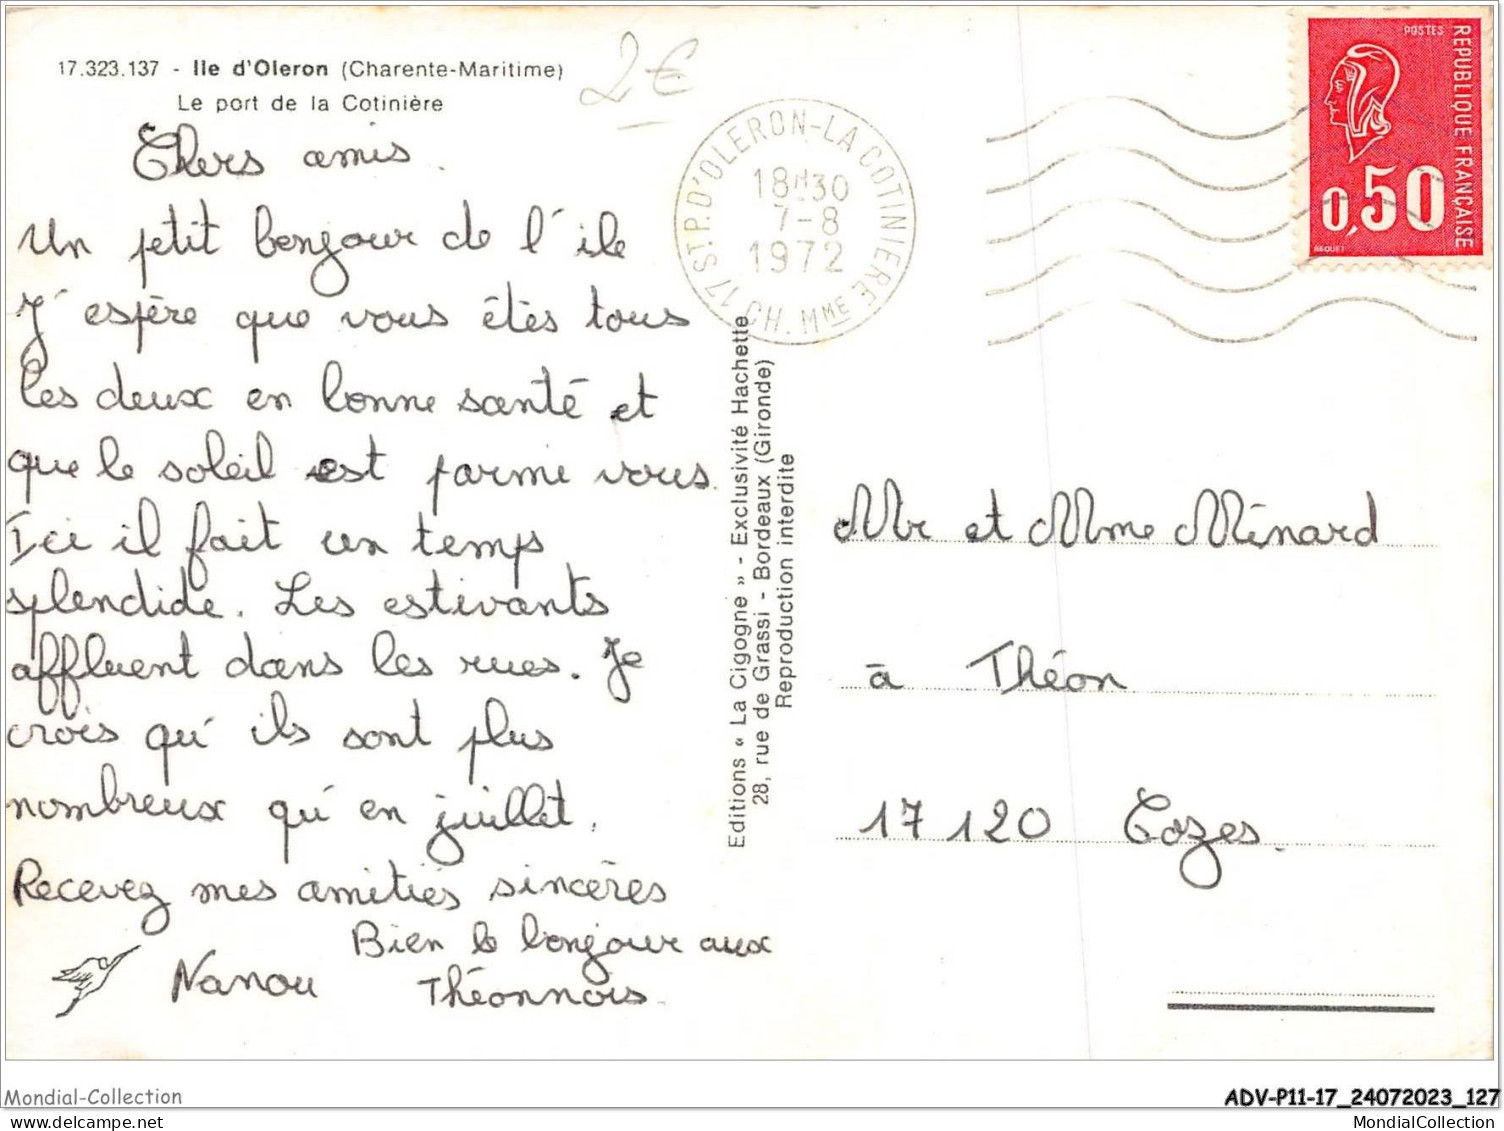 17.323.137 - Ile d'Oleron (Charente-Maritime)
Le port de la Cotinière
2€
Chers amis.
Un petit bonjour de l'ile
J'espère que vous êtes tous
les deux en bonne santé et
que le soleil est parmi vous.
Ici il fait un temps
splendide. Les estivants
affluent dans les rues. Je
crois qu'ils sont plus
nombreux qu'en juillet.
Recevez mes amitiés sincères
Bien le bonjour aux
Théonnois.
Nanou
Editions « La Cigogne » - Exclusivité Hachette
28, rue de Grassi - Bordeaux (Gironde)
Reproduction interdite
17 ST.P.D'OLERON-LA COTINIERE
18H30
7-8
1972
CH. MME
POSTES
REPUBLIQUE FRANÇAISE
0,50
BEQUET
Mr et Mme Ménard
à Théon
17120 Cozes.
Mondial-Collection
ADV-P11-17_24072023_127
MondialCollection
MondialCollection